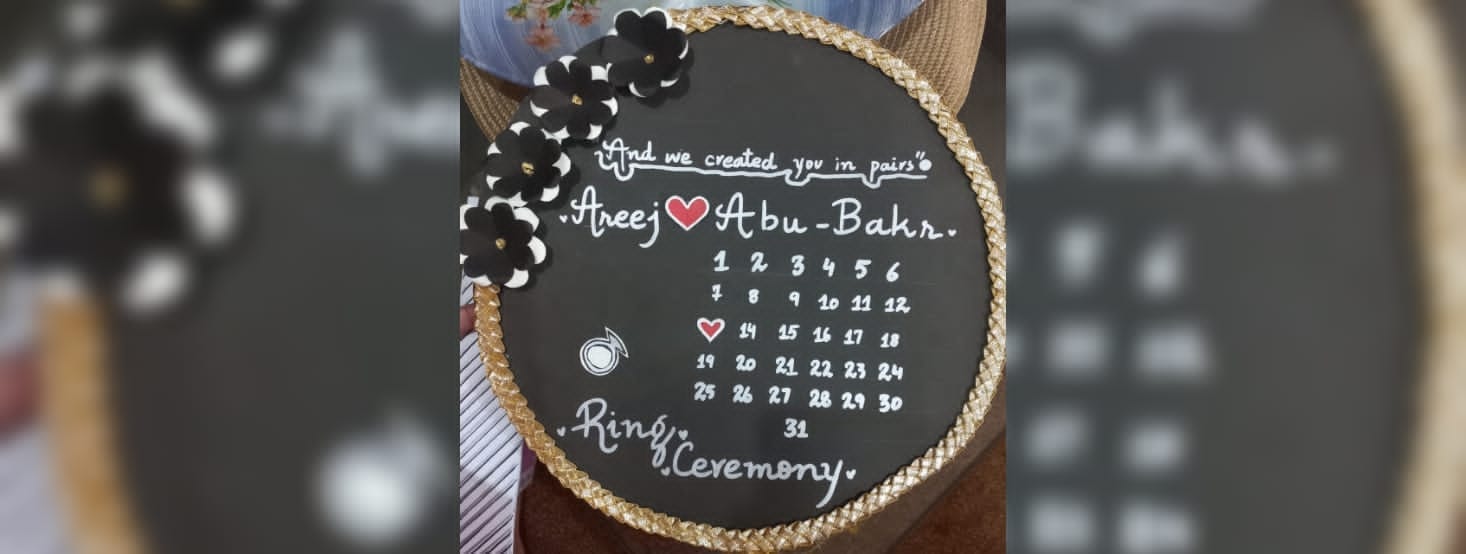 "And we created you in pairs"
Areej ❤ Abu-Bakr
1 2 3 4 5 6
7 8 9 10 11 12
❤ 14 15 16 17 18
19 20 21 22 23 24
25 26 27 28 29 30
31
Ring
Ceremony